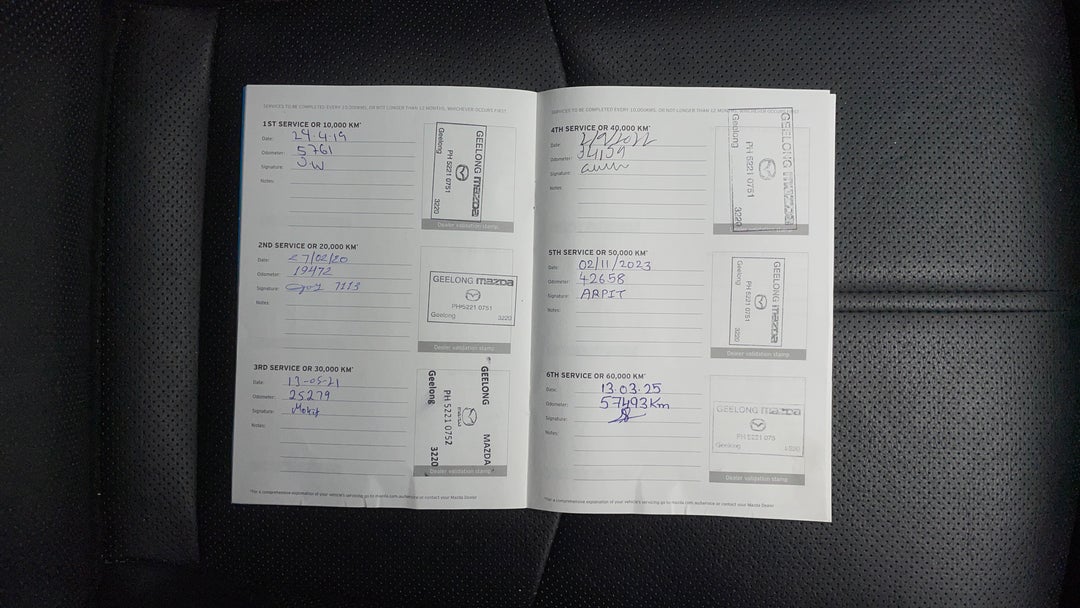 SERVICES TO BE COMPLETED EVERY 10,000KMS, OR NOT LONGER THAN 12 MONTHS, WHICHEVER OCCURS FIRST.
1ST SERVICE OR 10,000 KM*
Date: 24.4.19
Odometer: 5761
Signature: JW
Notes:
GEELONG mazda
PH 5221 0751
Geelong 3220
Dealer validation stamp
2ND SERVICE OR 20,000 KM*
Date: 27/02/20
Odometer: 19472
Signature: 7113
Notes:
GEELONG mazda
PH 5221 0751
Geelong 3220
Dealer validation stamp
3RD SERVICE OR 30,000 KM*
Date: 13-05-21
Odometer: 25279
Signature:
Notes:
GEELONG MAZDA
mazda
PH 5221 0752
Geelong 3220
Dealer validation stamp
*For a comprehensive explanation of your vehicle's servicing go to mazda.com.au/service or contact your Mazda Dealer
SERVICES TO BE COMPLETED EVERY 10,000KMS, OR NOT LONGER THAN 12 MONTHS, WHICHEVER OCCURS FIRST.
4TH SERVICE OR 40,000 KM*
Date: 2/9/2022
Odometer: 34159
Signature:
Notes:
GEELONG mazda
PH 5221 0751
Geelong 3220
5TH SERVICE OR 50,000 KM*
Date: 02/11/2023
Odometer: 42658
Signature: ARPIT
Notes:
GEELONG mazda
PH 5221 0751
Geelong 3220
Dealer validation stamp
6TH SERVICE OR 60,000 KM*
Date: 13.03.25
Odometer: 57493Km
Signature:
Notes:
GEELONG mazda
PH 5221 075
Geelong 3220
Dealer validation stamp
*For a comprehensive explanation of your vehicle's servicing go to mazda.com.au/service or contact your Mazda Dealer